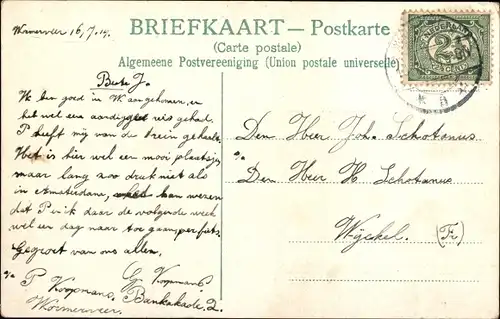 Wormerveer 16/7.19.
BRIEFKAART — Postkarte
(Carte postale)
Algemeene Postvereeniging (Union postale universelle)
Beste J.
Ik ben goed in W. aangekomen, en
heb wel een aardige reis gehad.
P heeft mij van de trein gehaald.
Het is hier wel een mooi plaatsje
maar lang zoo druk niet als
in Amsterdam, kan wezen
dat P en ik daar de volgende week
wel een dag naar toe gaan per fiets.
Gegroet van ons allen.
Koopmans
P Koopmans, Bankakade 2.
Wormerveer.
Den Heer Joh. Schotanus
Den Heer H. Schotanus
Wijckel. (Fr)